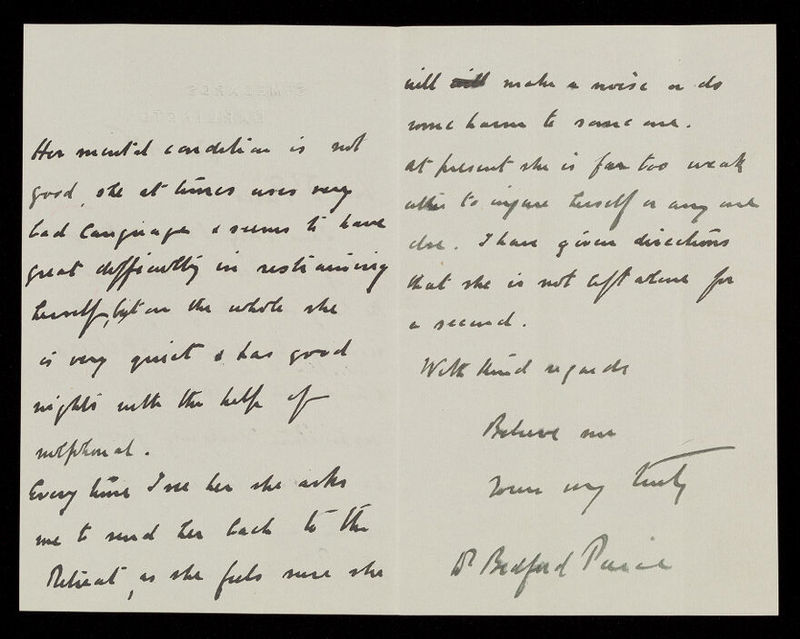 Her mental condition is not
good, she at times uses very
bad language & seems to have
great difficulty in restraining
herself, but on the whole she
is very quiet & has good
nights with the help of
sulphonal.
Every time I see her she asks
me to send her back to the
Retreat, as she feels sure she
will make a noise or do
some harm to some one.
At present she is far too weak
either to injure herself or any one
else. I have given directions
that she is not left alone for
a second.
With kind regards
Believe me
Yours very truly
Dr Bedford Pierce